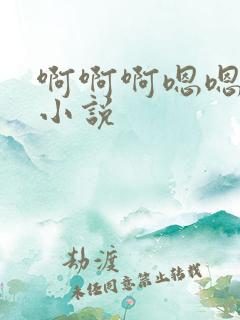 啊啊啊嗯嗯
小说
劫渡
未经同意禁止转载